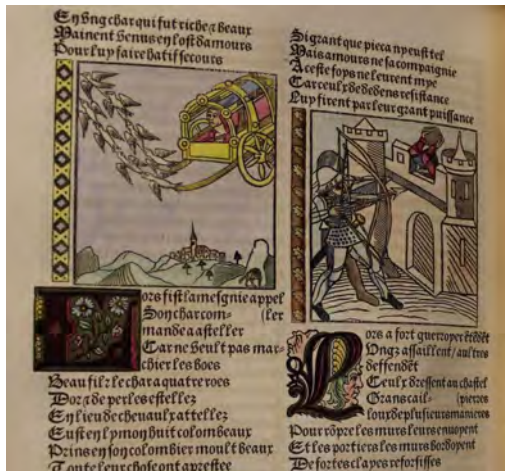 En ung char qui fut riche & beaux
Mainent venus en lost damours
Pour luy faire hatif secours
ors fist la mesgnie appel
Son char com- (ler
mande a asteller
Car ne veult pas mar-
chier les boes
Beau fil3 le char a quatre roes
Dor & de perles estelle3
En lieu de chevaulx attelle3
Eust en lymon huit colombeaux
Prins en son colombier moult beaux
Toute leur chose ont aprestee
Si grant que pieca ny eust tel
Mais amours ne sa compaignie
A ceste foys ne leurent mye
Car ceulx de dedens resistance
Luy firent par leur grant puissance
ors a fort guerroyer etedet
Ungz assaillent / aultres
deffendet
Ceulx dressent au chastel
Grans cail- (pierres
loux de plusieurs manieres
Pour ropre les murs leurs envoyent
Et les portiers les murs hordoyent
De fortes clayes reforsisses